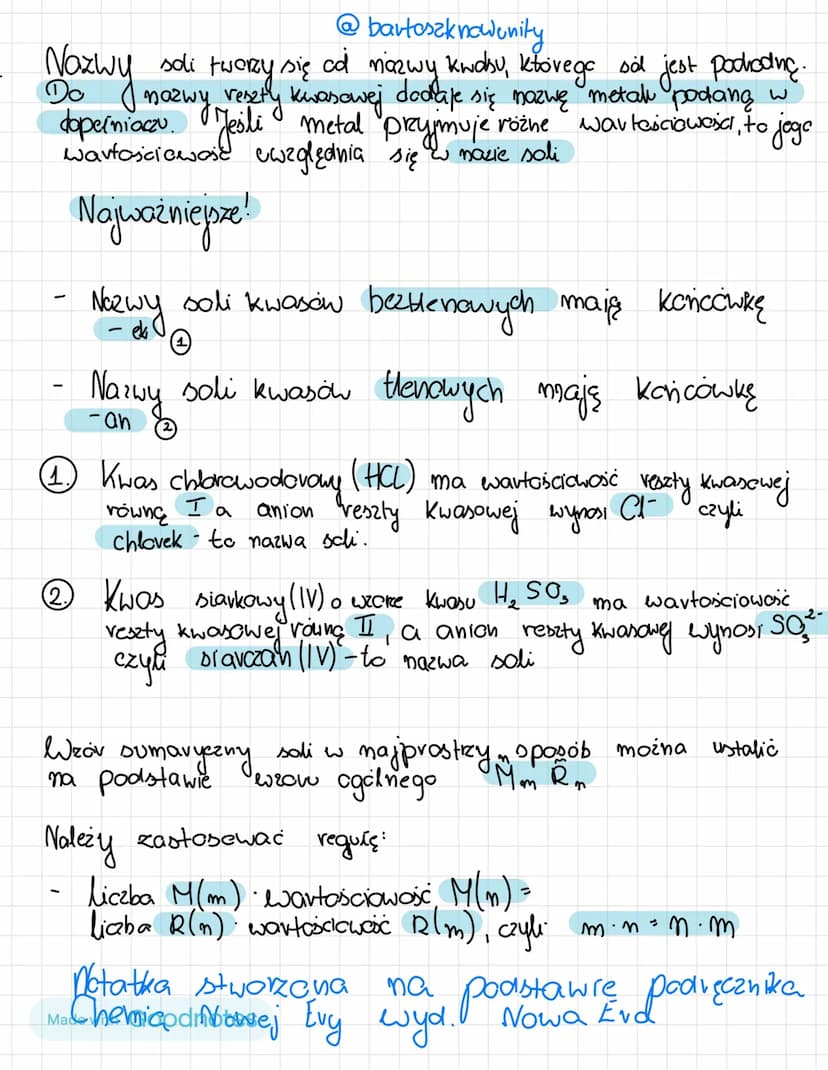 @ bartoszknowunity
Nazwy soli tworzy się od nazwy kwasu, którego sól jest pochodną.
Do nazwy reszty kwasowej dodaje się nazwę metalu podaną w
dopełniaczu. Jeśli metal przyjmuje różne wartościowości, to jego
wartościowość uwzględnia się w nazie soli
Najważniejsze!
- Nazwy soli kwasów beztlenowych mają końcówkę
- ek ①
- Nazwy soli kwasów tlenowych mają końcówkę
-an ②
①. Kwas chlorowodorowy (HCl) ma wartościowość reszty kwasowej
równą I a anion reszty kwasowej wynosi Cl⁻ czyli
chlorek - to nazwa soli.
②. Kwas siarkowy (IV) o wzorze kwasu H₂SO₃ ma wartościowość
reszty kwasowej równą II, a anion reszty kwasowej wynosi SO₃²⁻
czyli siarczan (IV) - to nazwa soli
Wzór sumaryczny soli w najprostrzy sposób można ustalić
na podstawie wzoru ogólnego MₘⁿRₙᵐ
Należy zastosować regułę:
- liczba M(m) · wartościowość M(n) =
liczba R(n) · wartościowość R(m), czyli m · n = n · m
Notatka stworzona na podstawie podręcznika
Chemia Nowej Ery wyd. Nowa Era
Made with Goodnotes